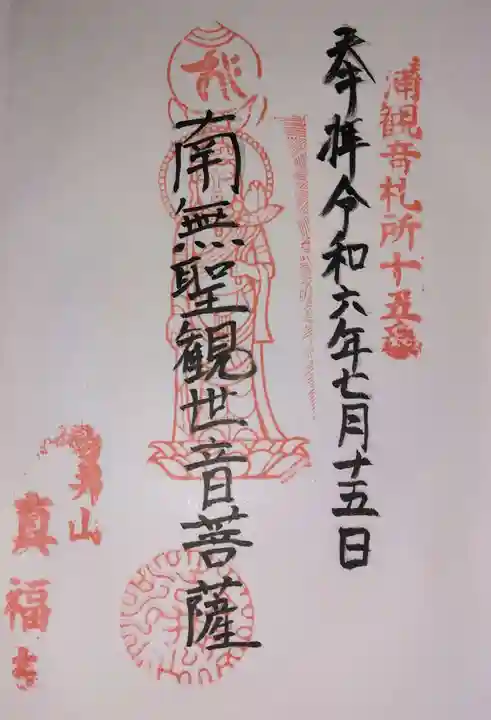 浦観音札所十五番
奉拝令和六年七月十五日
南無聖観世音菩薩
山
真福寺